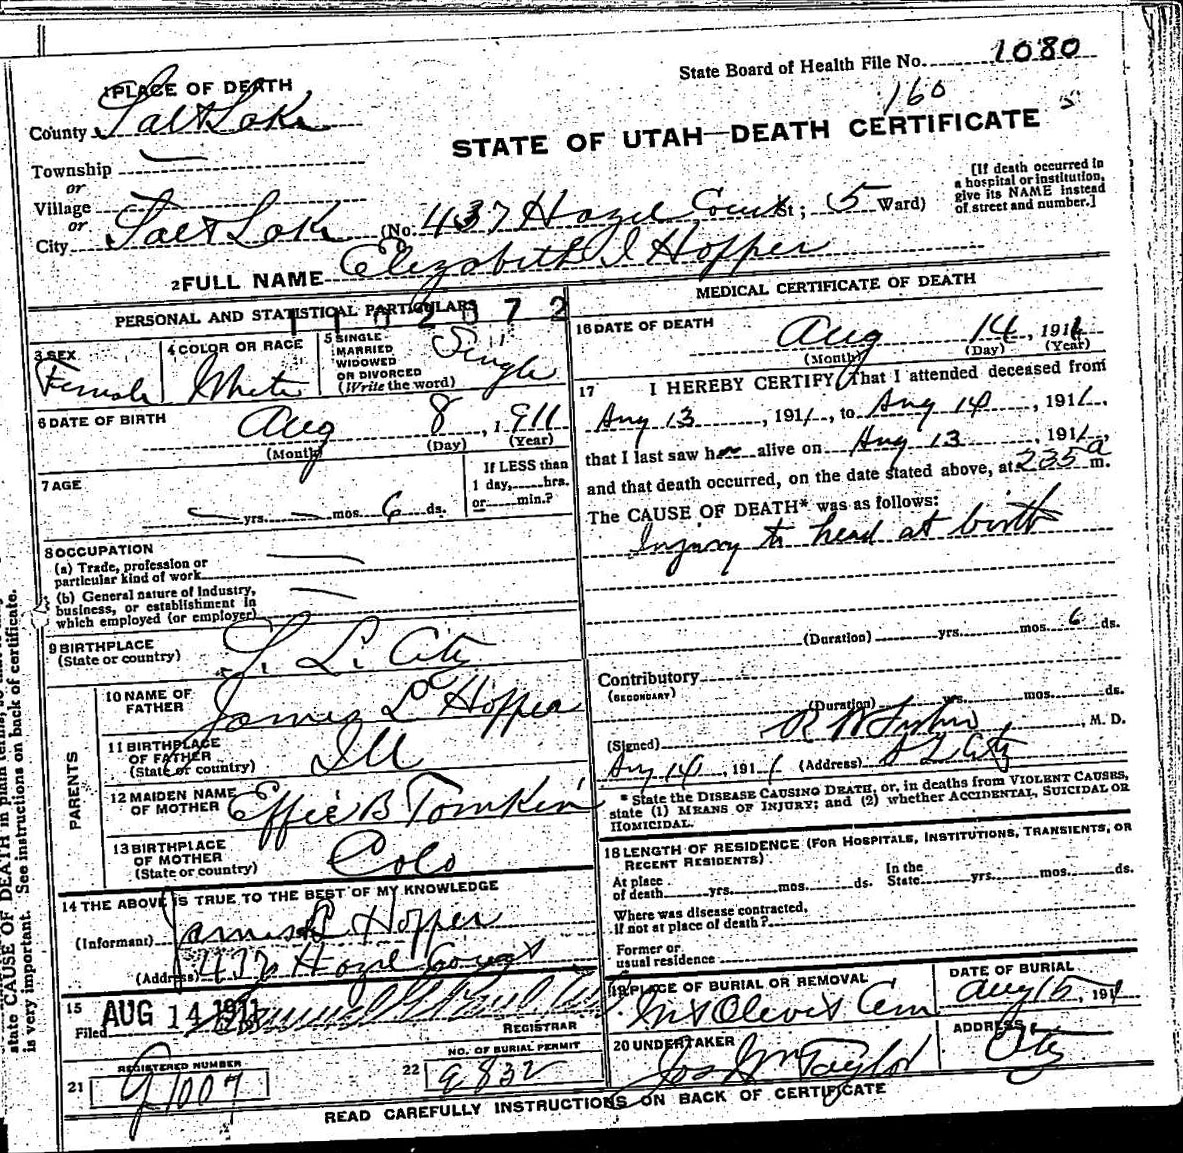 State Board of Health File No. 1080
160
1 PLACE OF DEATH
County Salt Lake
STATE OF UTAH—DEATH CERTIFICATE
Township
or
Village
or
City Salt Lake (No. 437 Hazel Court St; 5 Ward)
[If death occurred in
a hospital or institution,
give its NAME instead
of street and number.]
2 FULL NAME Elizabeth I Hopper
PERSONAL AND STATISTICAL PARTICULARS
1102072
3 SEX
Female
4 COLOR OR RACE
White
5 SINGLE
MARRIED
WIDOWED
OR DIVORCED
(Write the word)
Single
6 DATE OF BIRTH
Aug 8, 1911
(Month) (Day) (Year)
7 AGE
yrs. mos. 6 ds.
If LESS than
1 day, hrs.
or min.?
8 OCCUPATION
(a) Trade, profession or
particular kind of work
(b) General nature of Industry,
business, or establishment in
which employed (or employer)
9 BIRTHPLACE
(State or country)
S. L. City
PARENTS
10 NAME OF
FATHER
James L Hopper
11 BIRTHPLACE
OF FATHER
(State or country)
Ill
12 MAIDEN NAME
OF MOTHER
Effie B Tomkin
13 BIRTHPLACE
OF MOTHER
(State or country)
Colo
14 THE ABOVE IS TRUE TO THE BEST OF MY KNOWLEDGE
(Informant) James L Hopper
(Address) 437 Hazel Court
15
Filed AUG 14 1911
REGISTRAR
REGISTERED NUMBER
21 1007
NO. OF BURIAL PERMIT
22 9832
MEDICAL CERTIFICATE OF DEATH
16 DATE OF DEATH
Aug 14, 1911
(Month) (Day) (Year)
17 I HEREBY CERTIFY, That I attended deceased from
Aug 13, 1911, to Aug 14, 1911,
that I last saw her alive on Aug 13, 1911,
and that death occurred, on the date stated above, at 235 a m.
The CAUSE OF DEATH* was as follows:
Injury to head at birth
(Duration) yrs. mos. 6 ds.
Contributory
(SECONDARY)
(Duration) yrs. mos. ds.
(Signed) R W M. D.
Aug 14, 1911 (Address) S L City
* State the DISEASE CAUSING DEATH, or, in deaths from VIOLENT CAUSES,
state (1) MEANS OF INJURY; and (2) whether ACCIDENTAL, SUICIDAL OR
HOMICIDAL.
18 LENGTH OF RESIDENCE (FOR HOSPITALS, INSTITUTIONS, TRANSIENTS, OR
RECENT RESIDENTS)
At place
of death yrs. mos. ds.
In the
State yrs. mos. ds.
Where was disease contracted,
if not at place of death?
Former or
usual residence
19 PLACE OF BURIAL OR REMOVAL
Mt Olivet Cem
DATE OF BURIAL
Aug 15, 1911
20 UNDERTAKER
Jos Wm Taylor
ADDRESS
City
READ CAREFULLY INSTRUCTIONS ON BACK OF CERTIFICATE
state CAUSE OF DEATH in plain terms,
is very important. See instructions on back of certificate.